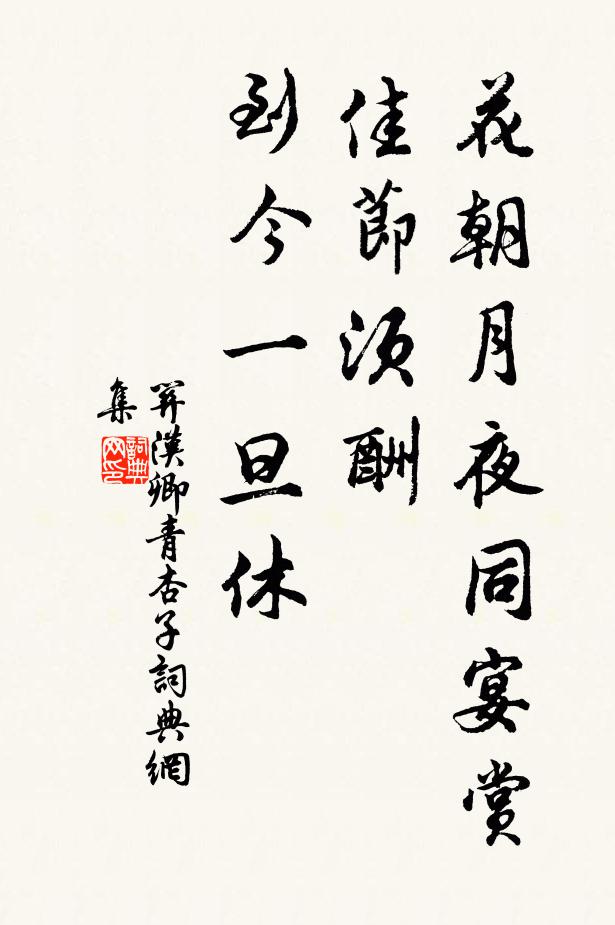 花朝月夜同宴賞
佳節須酬
到今一旦休
關漢卿青杏子詞典網
集
詞典
网印